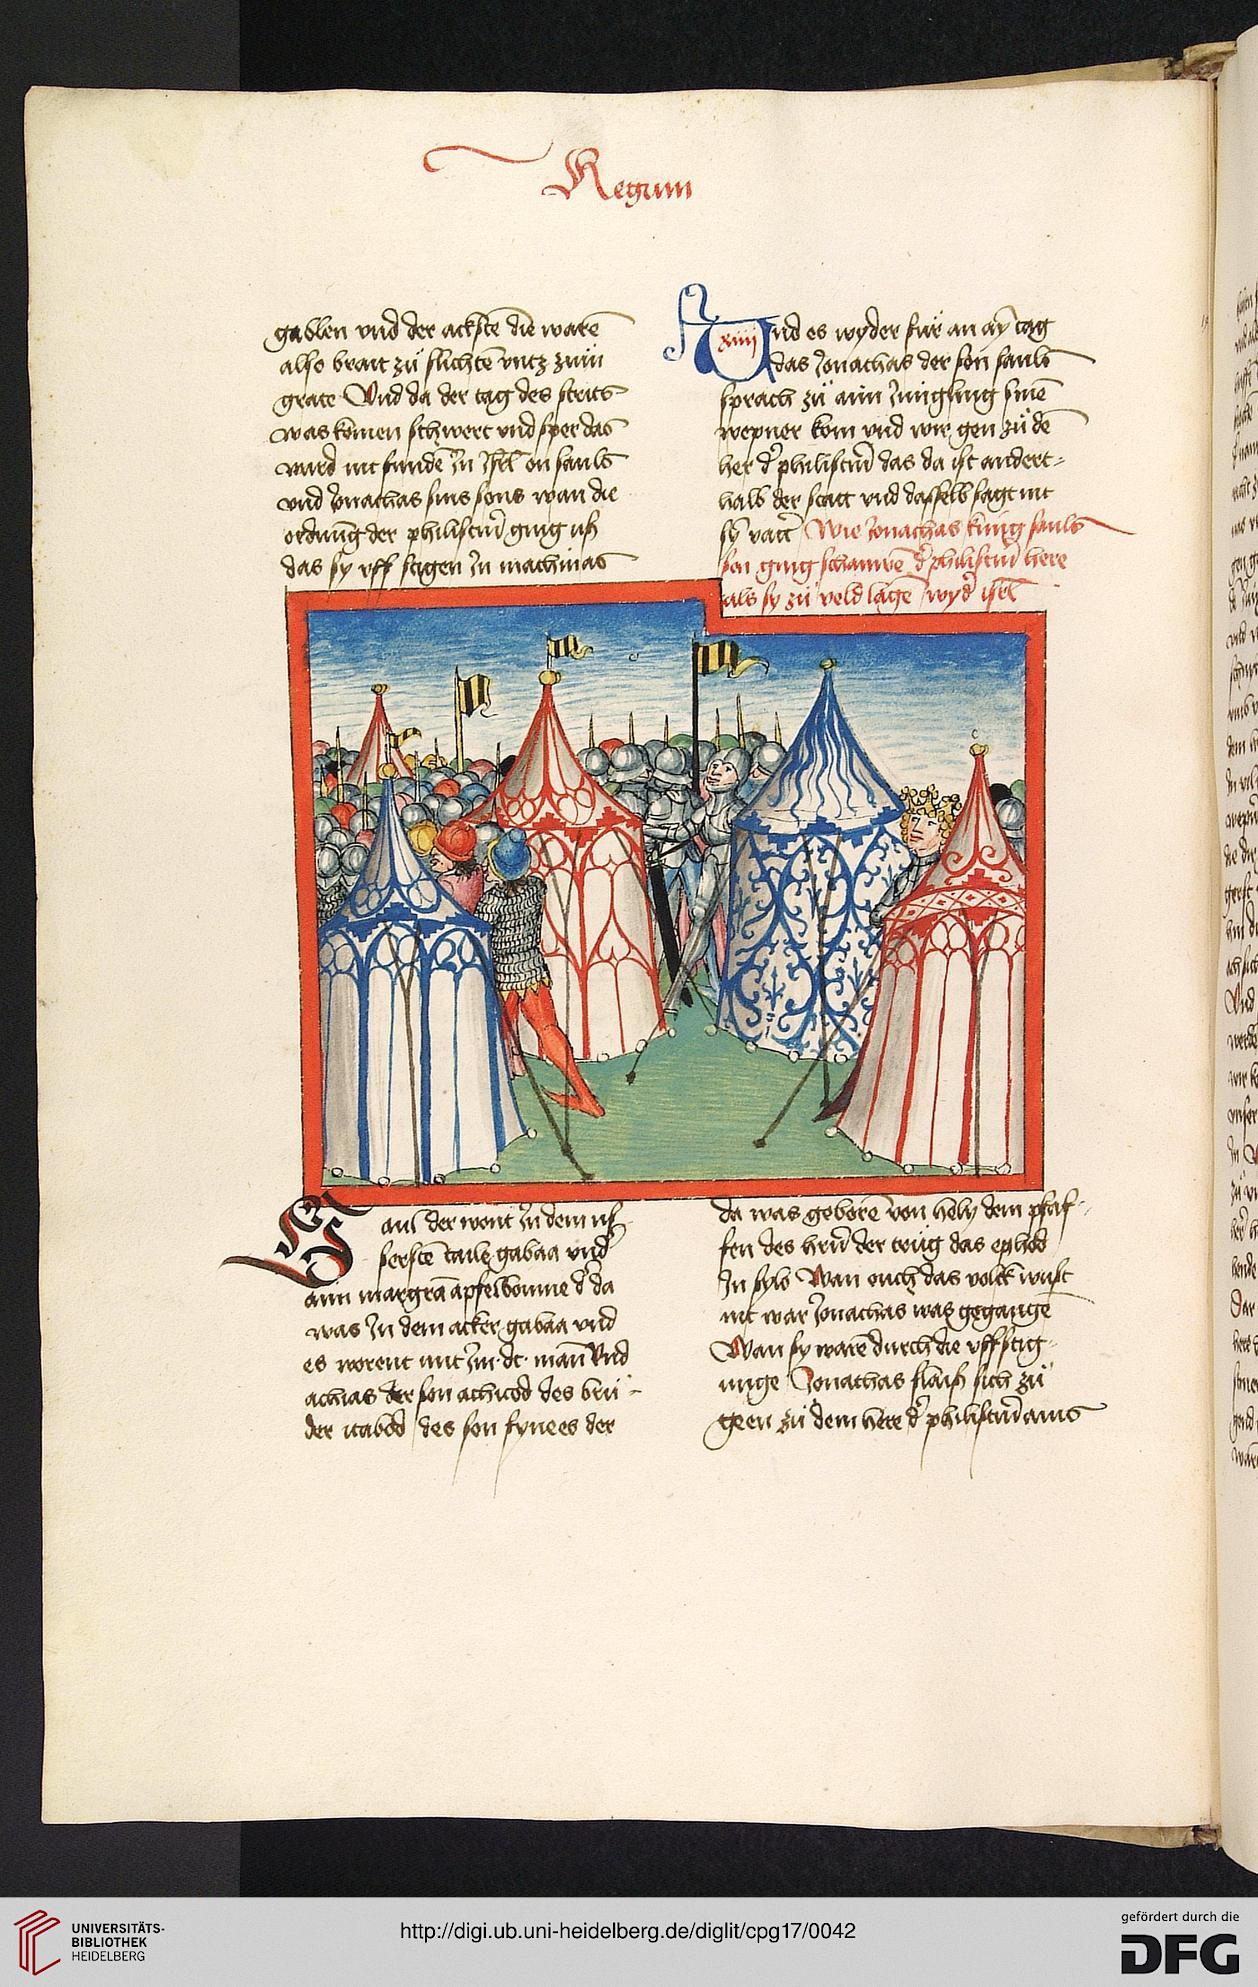 Regum
gablen vnd der ackste die warē
also brait zü slichtē vntz zum
grate Vnd da der tag des strits
was komen schwert vnd sper das
ward nit fundē In Isrl on sauls
vnd Jonathas sins sons wan die
ordnūg der philistim ging uß
das sy vff stigen In machmas
xiiij
Vnd es wyder für an aȳ tag
das Jonathas der son sauls
sprach zü aim Jüngling sinē
wepner kom vnd wir gen zü dē
her d' philistim das da ist andert
halb der statt vnd dasselb sagt nit
sȳ vatt' Wie Jonathas küng sauls
son ging schauwē d' philistim here
als sy zü veld lagē wyd' isrl
Saul der wont In dem uß
sersten taile gabaa vnd'
aim margrā apfelboume d' da
was In dem acker gabaa vnd
es worent mit Im dc man Vnd
achias der son achitob des brü
der itabod des son fynees der
da was geborē von hely dem pfaf
fen des hrn̄ der trüg das ephod
In sylo Wan ouch das volck wust
nit war Jonathas was gegangē
Wan sy warē durch die vffstig
unge Jonathas flaiß sich zü
geen zü dem here d' philistim ains
UNIVERSITÄTS-
BIBLIOTHEK
HEIDELBERG
http://digi.ub.uni-heidelberg.de/diglit/cpg17/0042
gefördert durch die
DFG